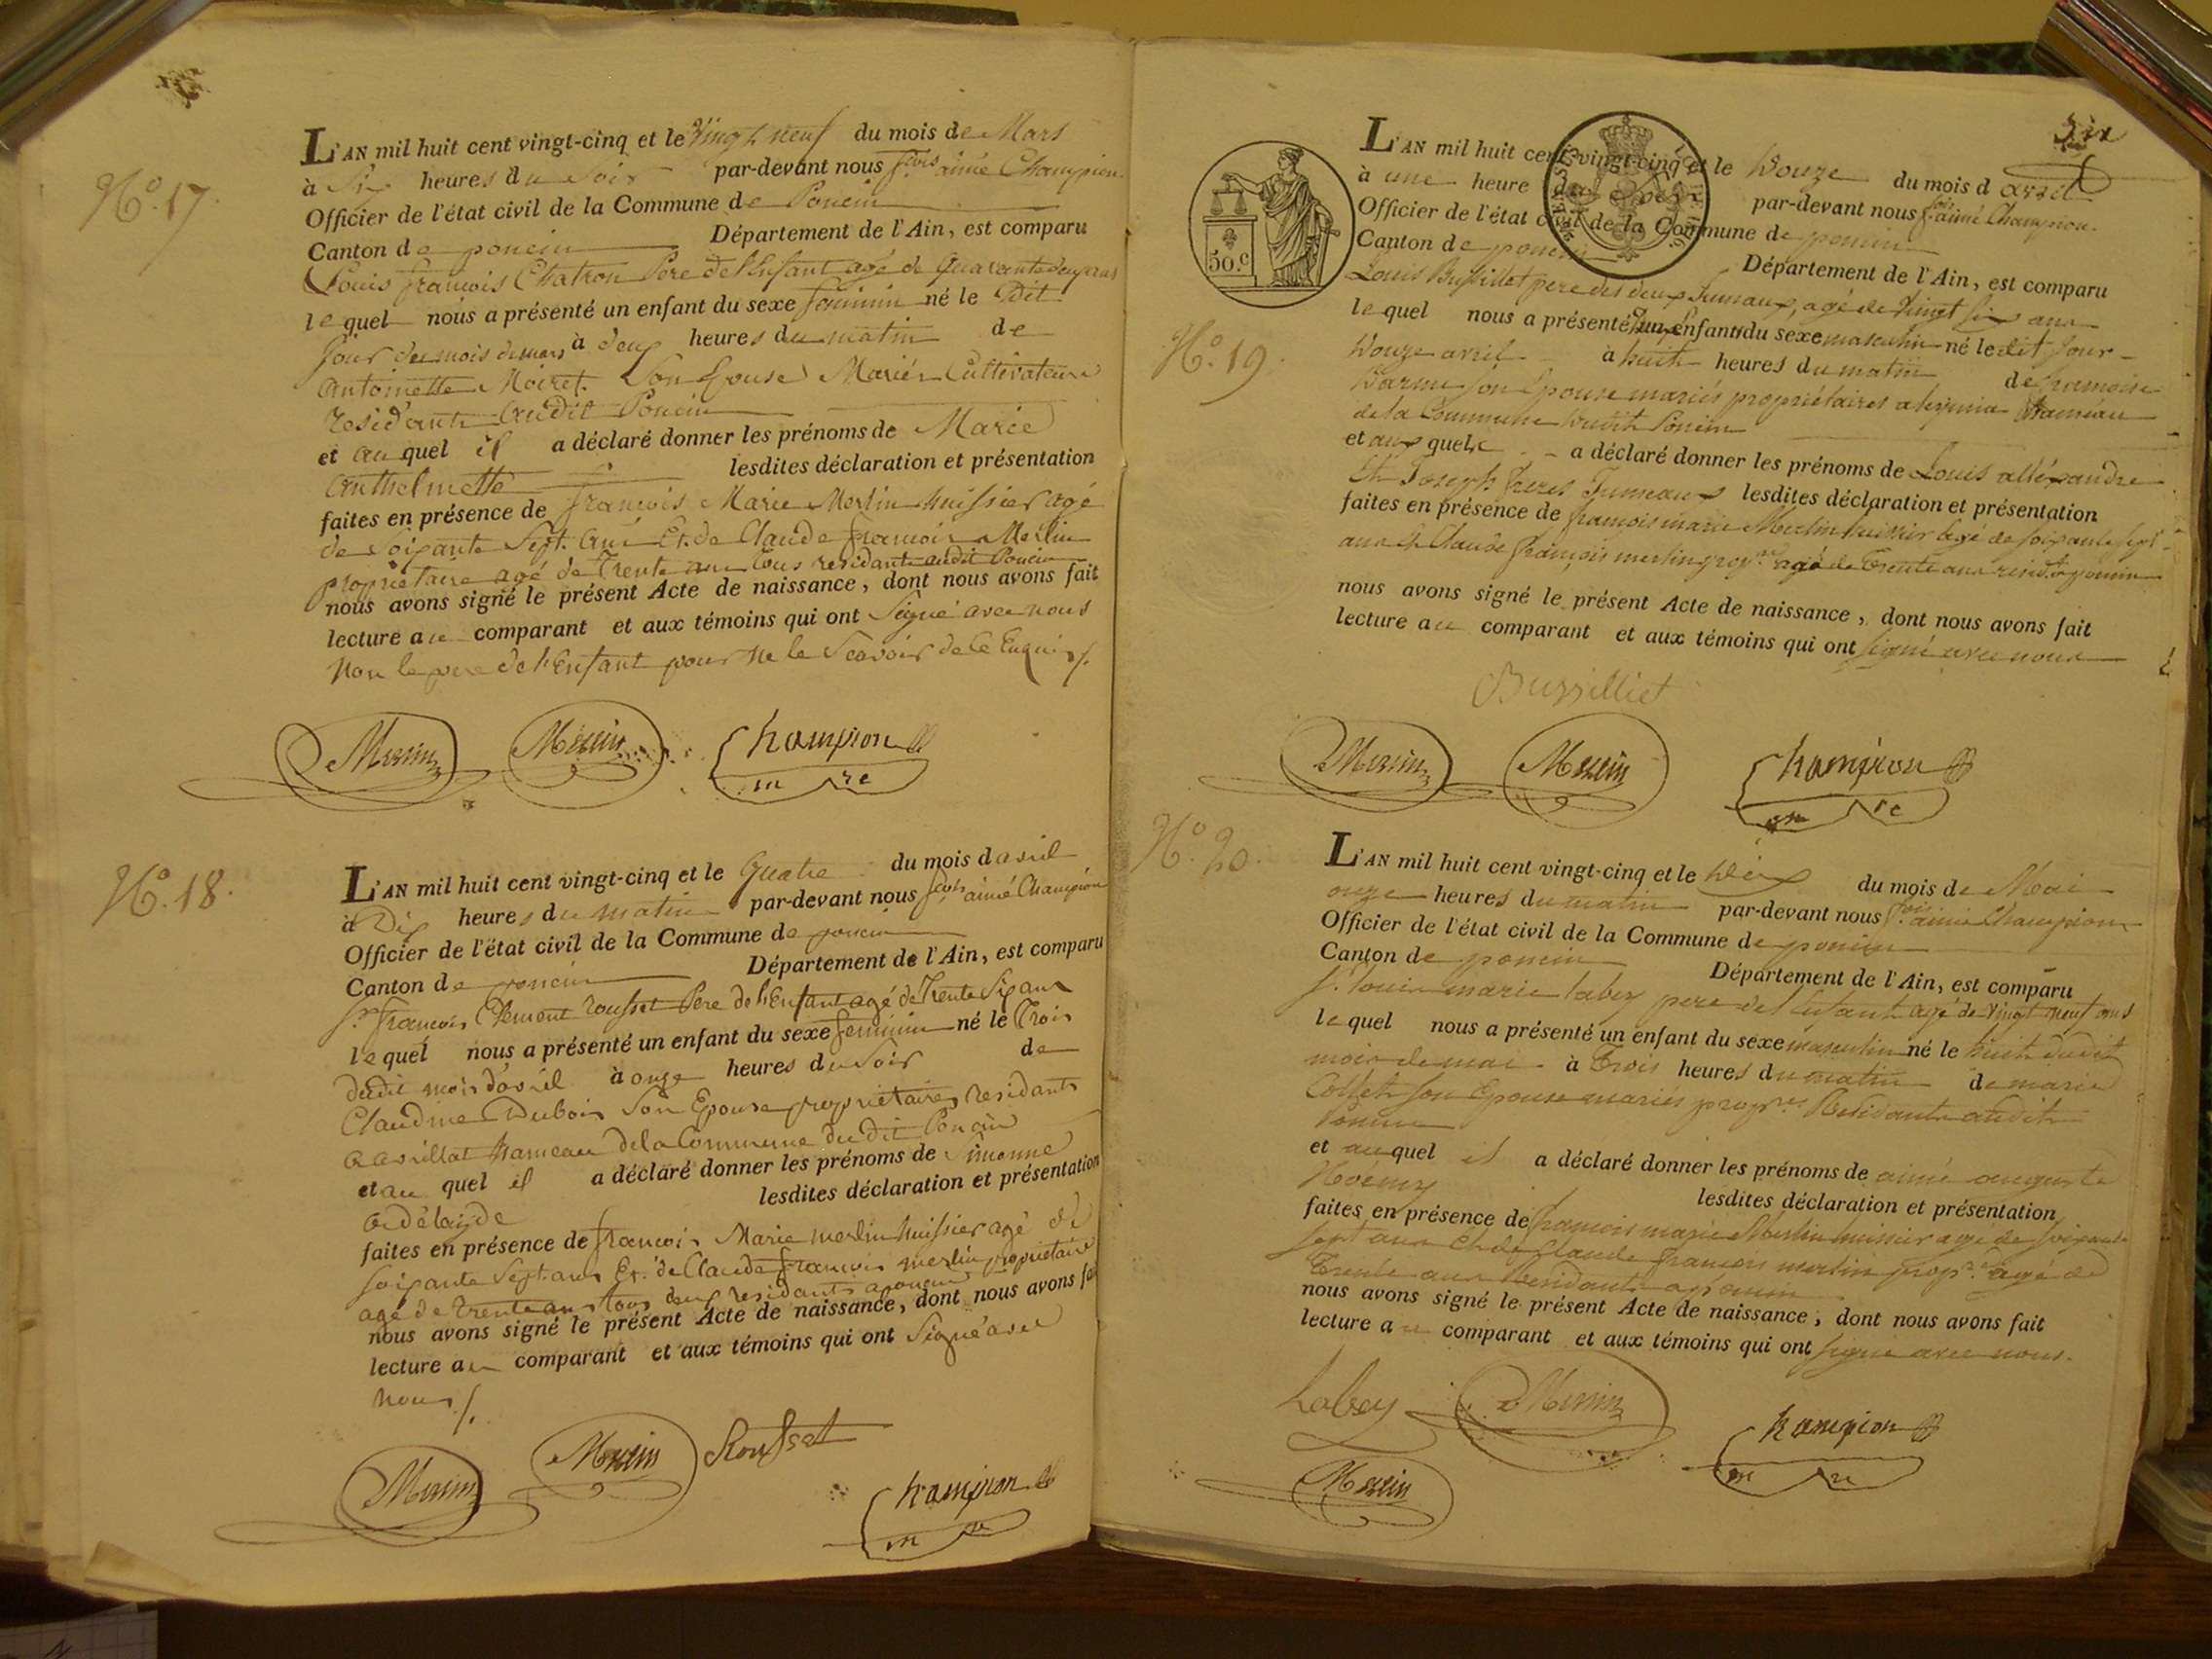 N.° 17.
L'AN mil huit cent vingt-cinq et le Vingt neuf du mois de Mars
à Six heures du Soir par-devant nous f.cois aimé Champion
Officier de l'état civil de la Commune de Poncin
Canton de poncin Département de l'Ain, est comparu
Louis françois Chatron Pere de l'Enfant agé de Quarante deux ans
le quel nous a présenté un enfant du sexe feminin né le Dit
Jour du mois de mars à deux heures du matin de
antoinette Moiret Son Epouse Mariés Cultivateurs
residants audit Poncin
et au quel il a déclaré donner les prénoms de Marie
Anthelmette lesdites déclaration et présentation
faites en présence de françois Marie Merlin huissier agé
de Soixante Sept. ans Et. de Claude françois Merlin
propriétaire agé de Trente ans tous residants audit Poncin
nous avons signé le présent Acte de naissance, dont nous avons fait
lecture au comparant et aux témoins qui ont Signé avec nous
Non le pere de l'Enfant pour ne le Scavoir de ce Enquis /.
Merlin Merlin Champion
m re
N.° 18.
L'AN mil huit cent vingt-cinq et le Quatre du mois d avril
à Dix heures du matin par-devant nous f.cois aimé Champion
Officier de l'état civil de la Commune de poncin
Canton de poncin Département de l'Ain, est comparu
S.r françois Clement rousset Pere de l'Enfant agé de Trente Six ans
le quel nous a présenté un enfant du sexe feminin né le Trois
dudit mois d'avril à onze heures du Soir de
Claudine Dubois Son Epouse propriétaires residants
a avrillat hameau de la Commune du dit Poncin
et au quel il a déclaré donner les prénoms de Simonne
adélayde lesdites déclaration et présentation
faites en présence de françois Marie merlin huissier agé de
soixante Sept. ans Et. de Claude françois merlin propriétaire
agé de trente ans tous deux residants a poncin
nous avons signé le présent Acte de naissance, dont nous avons fai
lecture au comparant et aux témoins qui ont Signé avec
nous /.
Merlin Merlin Rousset
Champion
m re
Six
L'AN mil huit cent vingt-cinq et le Douze du mois d avril
à une heure du Soir par-devant nous f.cois aimé Champion.
Officier de l'état civil de la Commune de poncin
Canton de poncin Département de l'Ain, est comparu
50.c
Louis Bussillet pere des deux Jumeaux, agé de Vingt six ans
N.° 19.
le quel nous a présenté deux un enfants du sexe masculin né le dit Jour
Douze avril à huit heures du matin de
Barme son Epouse mariés propriétaires hameau
de la Commune dudit Poncin
et aux quels a déclaré donner les prénoms de Louis allexandre
Et Joseph freres Jumeaux lesdites déclaration et présentation
faites en présence de françois marie Merlin huissier agé de soixante sept
ans Et Claude françois merlin prop.re agé de Trente ans resid.ts a poncin
nous avons signé le présent Acte de naissance, dont nous avons fait
lecture au comparant et aux témoins qui ont signé avec nous
Bussilliet
Merlin Merlin Champion
m re
N.° 20.
L'AN mil huit cent vingt-cinq et le Dix du mois de Mai
onze heures du matin par-devant nous f.cois aimé Champion
Officier de l'état civil de la Commune de poncin
Canton de poncin Département de l'Ain, est comparu
S.r Louis marie labey pere de l'Enfant agé de Vingt neuf ans
le quel nous a présenté un enfant du sexe masculin né le huit dudit
mois de mai à Trois heures du matin de marie
Collet son Epouse mariés prop.res Residants audit
Poncin
et au quel il a déclaré donner les prénoms de aimé auguste
Noémy lesdites déclaration et présentation
faites en présence de françois marie Merlin huissier agé de soixante
sept ans Et de Claude françois merlin prop.re agé de
Trente ans Residants a poncin
nous avons signé le présent Acte de naissance, dont nous avons fait
lecture au comparant et aux témoins qui ont signé avec nous.
Labey Merlin Champion
m re
Merlin